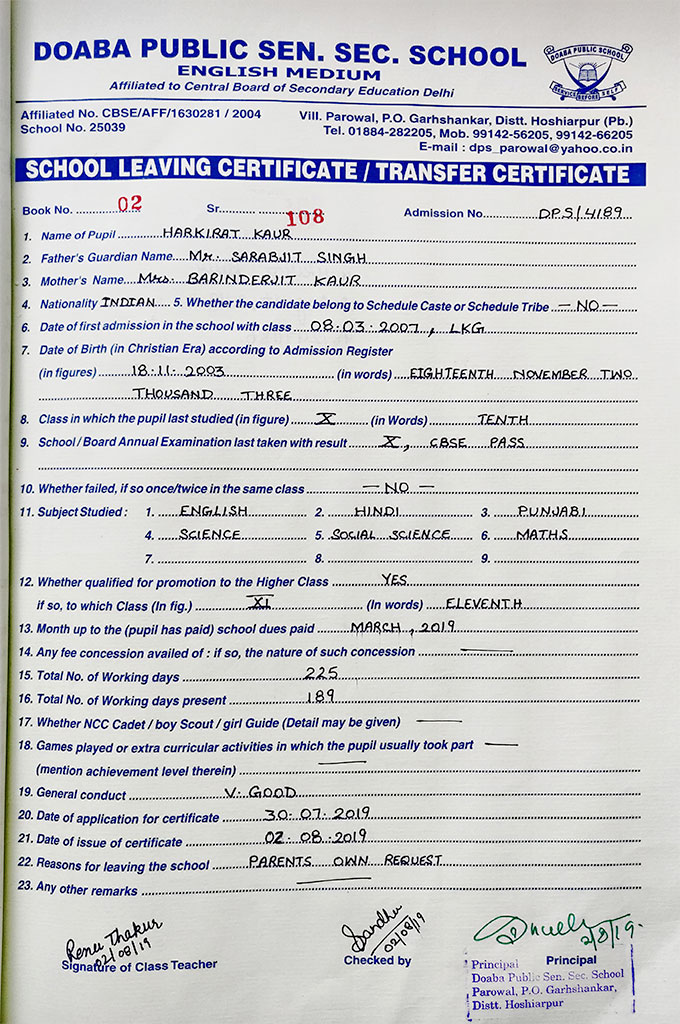 DOABA PUBLIC SEN. SEC. SCHOOL
ENGLISH MEDIUM
Affiliated to Central Board of Secondary Education Delhi
DOABA PUBLIC SCHOOL
SERVICE BEFORE SELF
Affiliated No. CBSE/AFF/1630281 / 2004
School No. 25039
Vill. Parowal, P.O. Garhshankar, Distt. Hoshiarpur (Pb.)
Tel. 01884-282205, Mob. 99142-56205, 99142-66205
E-mail : dps_parowal@yahoo.co.in
SCHOOL LEAVING CERTIFICATE / TRANSFER CERTIFICATE
Book No. 02 Sr. 108 Admission No. DPS/4189
1. Name of Pupil HARKIRAT KAUR
2. Father's Guardian Name Mr. SARABJIT SINGH
3. Mother's Name Mrs. BARINDERJIT KAUR
4. Nationality INDIAN 5. Whether the candidate belong to Schedule Caste or Schedule Tribe — NO —
6. Date of first admission in the school with class 08.03.2007, LKG
7. Date of Birth (in Christian Era) according to Admission Register
(in figures) 18.11.2003 (in words) EIGHTEENTH NOVEMBER TWO
THOUSAND THREE
8. Class in which the pupil last studied (in figure) X (in Words) TENTH
9. School / Board Annual Examination last taken with result X, CBSE PASS
10. Whether failed, if so once/twice in the same class — NO —
11. Subject Studied : 1. ENGLISH 2. HINDI 3. PUNJABI
4. SCIENCE 5. SOCIAL SCIENCE 6. MATHS
7. 8. 9.
12. Whether qualified for promotion to the Higher Class YES
if so, to which Class (In fig.) XI (In words) ELEVENTH
13. Month up to the (pupil has paid) school dues paid MARCH, 2019
14. Any fee concession availed of : if so, the nature of such concession —
15. Total No. of Working days 225
16. Total No. of Working days present 189
17. Whether NCC Cadet / boy Scout / girl Guide (Detail may be given) —
18. Games played or extra curricular activities in which the pupil usually took part —
(mention achievement level therein) —
19. General conduct V. GOOD
20. Date of application for certificate 30.07.2019
21. Date of issue of certificate 02.08.2019
22. Reasons for leaving the school PARENTS OWN REQUEST
23. Any other remarks —
Renu Thakur
02/08/19
Signature of Class Teacher
Sandhu
02/08/19
Checked by
2/8/19
Principal
Principal
Doaba Public Sen. Sec. School
Parowal, P.O. Garhshankar,
Distt. Hoshiarpur